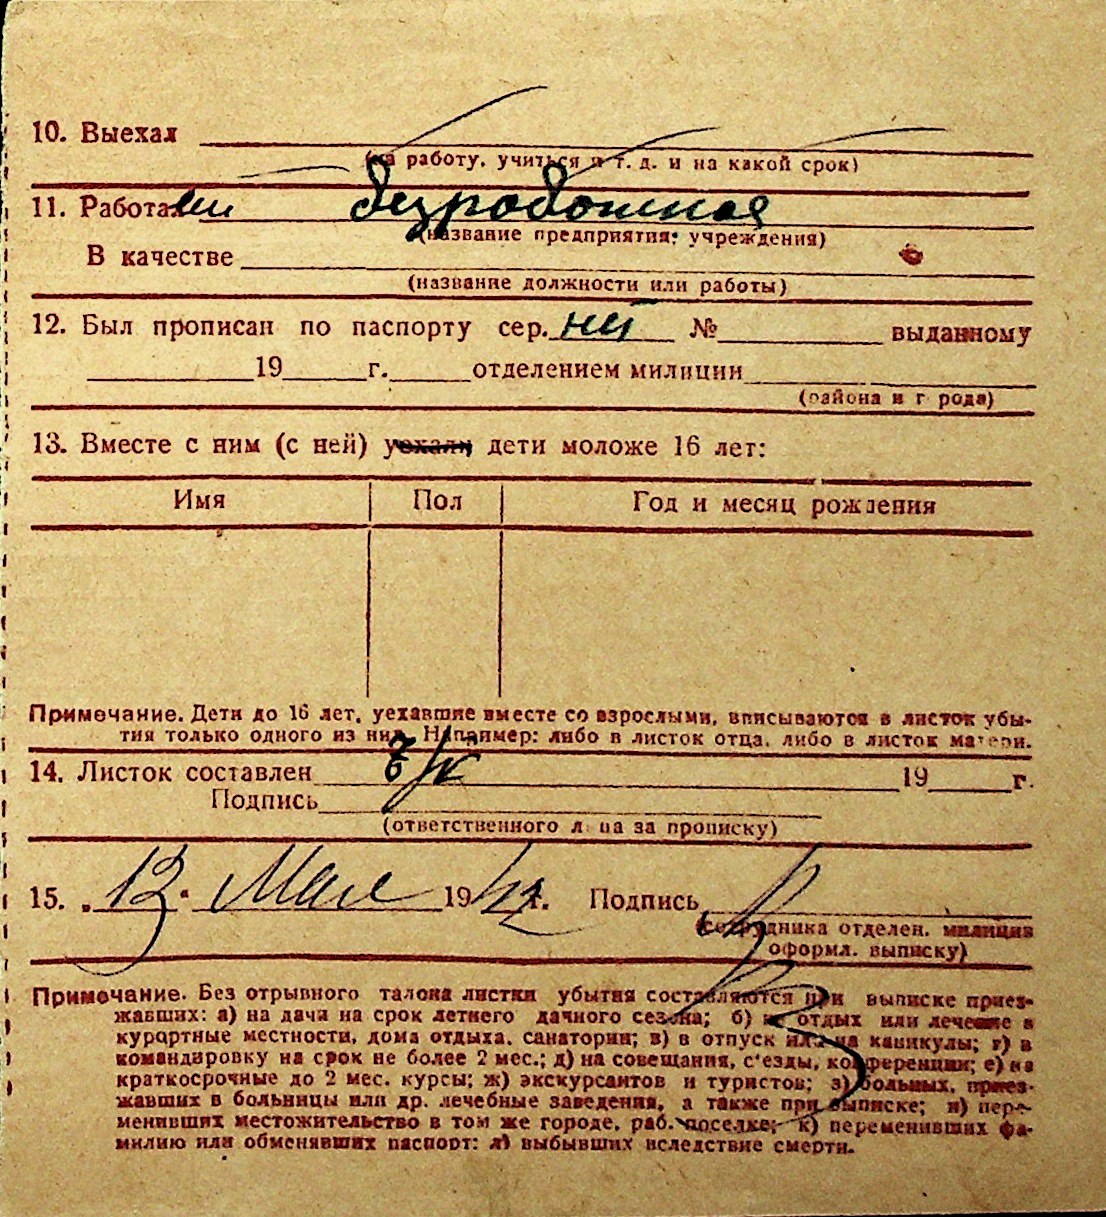 10. Выехал
(на работу, учиться и т. д. и на какой срок)
11. Работал безработная
(название предприятия, учреждения)
В качестве
(название должности или работы)
12. Был прописан по паспорту сер. нет № выданному
19 г. отделением милиции
(района и города)
13. Вместе с ним (с ней) уехали дети моложе 16 лет:
Имя Пол Год и месяц рождения
Примечание. Дети до 16 лет, уехавшие вместе со взрослыми, вписываются в листок убы-
тия только одного из них. Например: либо в листок отца, либо в листок матери.
14. Листок составлен 19 г.
Подпись
(ответственного лица за прописку)
15. „13" Мая 19 г. Подпись
(сотрудника отделен. милиции
оформл. выписку)
Примечание. Без отрывного талона листки убытия составляются при выписке приез-
жавших: а) на дачи на срок летнего дачного сезона; б) на отдых или лечение в
курортные местности, дома отдыха, санатории; в) в отпуск или на каникулы; г) в
командировку на срок не более 2 мес.; д) на совещания, с'езды, конференции; е) на
краткосрочные до 2 мес. курсы; ж) экскурсантов и туристов; з) больных, приез-
жавших в больницы или др. лечебные заведения, а также при выписке; и) пере-
менивших местожительство в том же городе, раб. поселке; к) переменивших фа-
милию или обменявших паспорт: л) выбывших вследствие смерти.